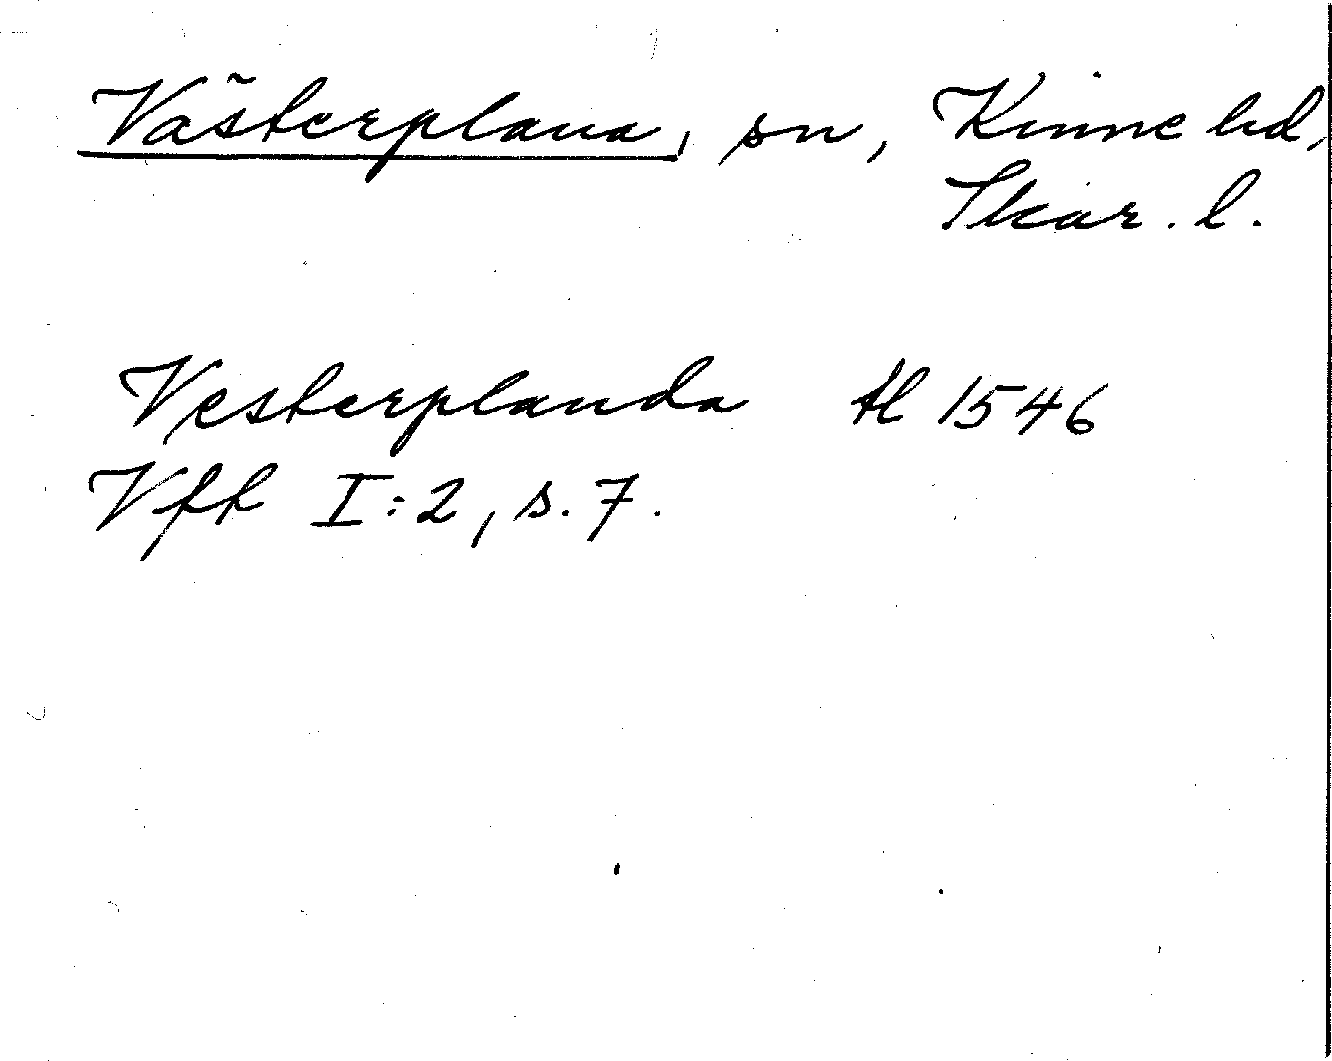 Västerplana, sn, Kinne hd,
Skar. l.
Vesterplanda tl 1546
Vft I:2, s. 7.